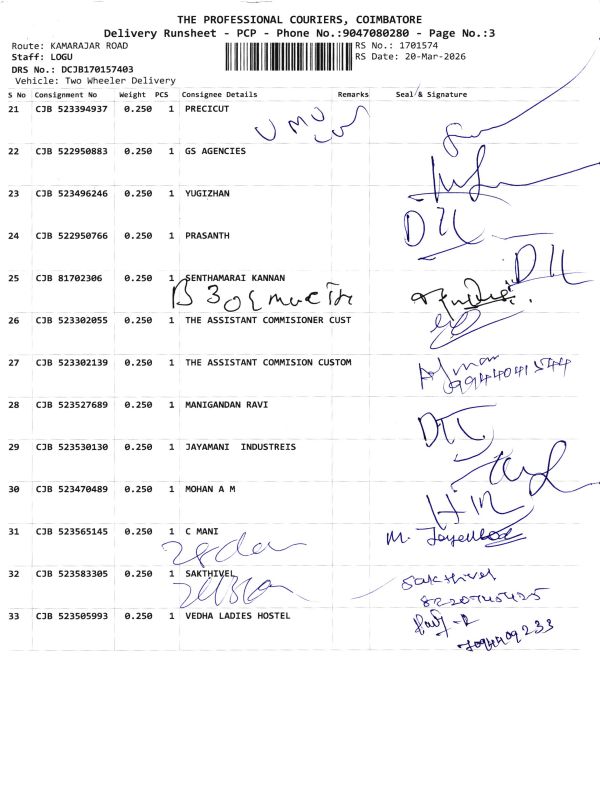 THE PROFESSIONAL COURIERS, COIMBATORE
Delivery Runsheet - PCP - Phone No.:9047080280 - Page No.:3
Route: KAMARAJAR ROAD RS No.: 1701574
Staff: LOGU RS Date: 20-Mar-2026
DRS No.: DCJB170157403
Vehicle: Two Wheeler Delivery
S No Consignment No Weight PCS Consignee Details Remarks Seal & Signature
21 CJB 523394937 0.250 1 PRECICUT
22 CJB 522950883 0.250 1 GS AGENCIES
23 CJB 523496246 0.250 1 YUGIZHAN
24 CJB 522950766 0.250 1 PRASANTH
25 CJB 81702306 0.250 1 SENTHAMARAI KANNAN
26 CJB 523302055 0.250 1 THE ASSISTANT COMMISIONER CUST
27 CJB 523302139 0.250 1 THE ASSISTANT COMMISION CUSTOM
9944041544
28 CJB 523527689 0.250 1 MANIGANDAN RAVI
29 CJB 523530130 0.250 1 JAYAMANI INDUSTREIS
30 CJB 523470489 0.250 1 MOHAN A M
31 CJB 523565145 0.250 1 C MANI
32 CJB 523583305 0.250 1 SAKTHIVEL
Sakthivel
8220745425
33 CJB 523505993 0.250 1 VEDHA LADIES HOSTEL